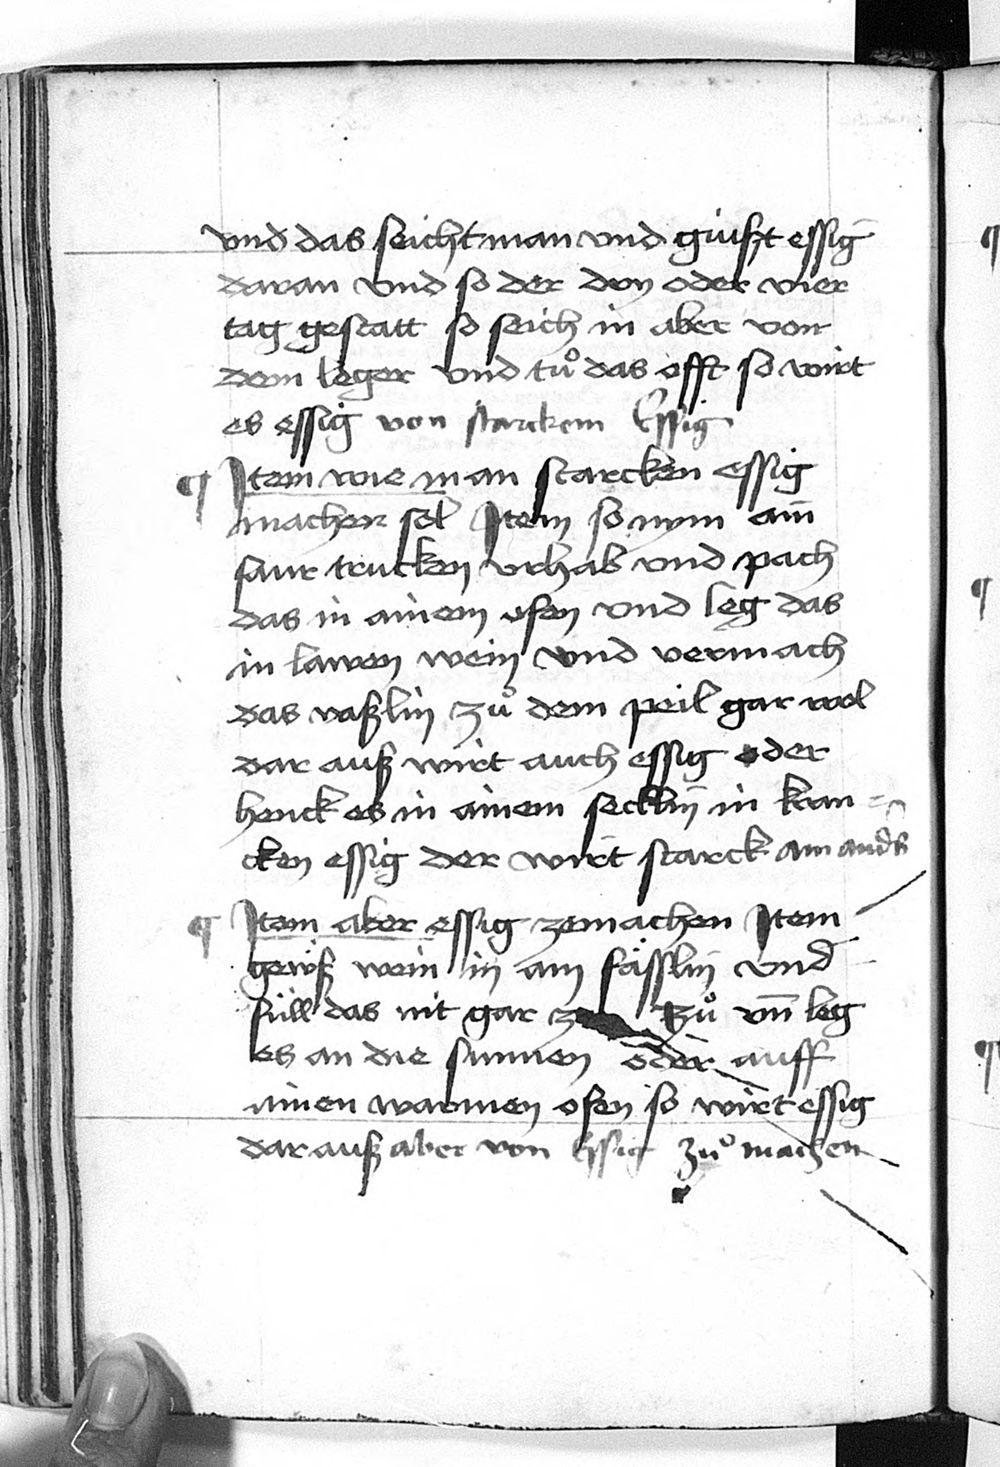 vnd das seicht man vnd giust essig
daran vnd so der dry oder vier
tag gestatt so seich in aber von
dem leger vnd tuͦ das offt so wirt
es essig von starckem Essig
¶ Item wie man starcken essig
machen sol Item so nym ain
saur trucken vrhab vnd pach
das in ainem ofen vnd leg das
in lawen wein vnd vermach
das vaßlin zuͦ dem peil gar wol
dar auß wirt auch essig oder
henck es in ainem secklin in kran
cken essig der wirt starck am andn̄
¶ Item aber essig zemachen Item
gewß wein in ain fässlin vnd
füll das nit gar zuͦ vn̄ leg
es an die sunnen oder auff
ainen warmen ofen so wirt essig
dar auß aber von Essig zuͦ machen